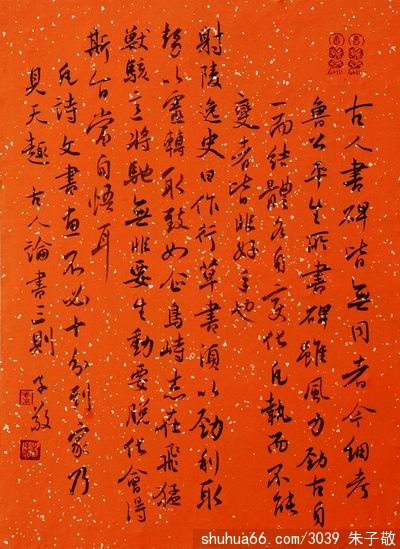 古人書碑皆無同者今細考
魯公平生所書碑雖風力勁古自
一而結體各自變化凡執而不能
變者皆非好手也
射陵逸史曰作行草書須以勁利取
勢以靈轉取致如企鳥峙志在飛猛
獸駭意將馳無非要生動要脫化會得
斯旨當自悟耳
凡詩文書畫不必十分到家乃
見天趣 古人論書三則 子敬
shuhua66.com/3039 朱子敬